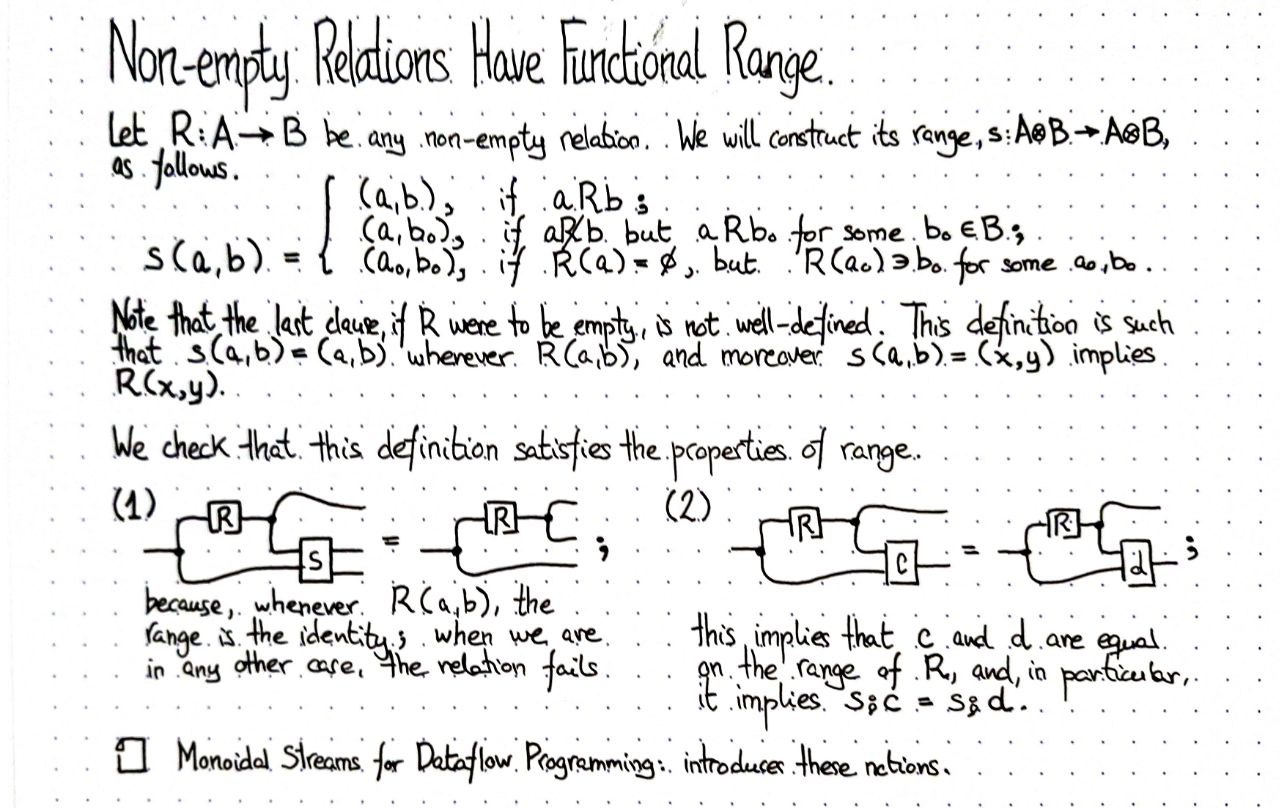 Non-empty Relations Have Functional Range.
Let R:A→B be any non-empty relation. We will construct its range, s:A⊗B→A⊗B,
as follows.
(a,b), if aRb;
(a,b₀), if aR̸b but aRb₀ for some b₀∈B;
s(a,b) = { (a₀,b₀), if R(a)=∅, but R(a₀)∋b₀ for some a₀,b₀.
Note that the last clause, if R were to be empty, is not well-defined. This definition is such
that s(a,b)=(a,b) wherever R(a,b), and moreover s(a,b)=(x,y) implies
R(x,y).
We check that this definition satisfies the properties of range.
(1) R S = R ; (2) R C = R d ;
because, whenever R(a,b), the
range is the identity; when we are
in any other case, the relation fails
this implies that c and d are equal
on the range of R, and, in particular,
it implies s⨾c = s⨾d.
Monoidal Streams for Dataflow Programming: introduces these notions.